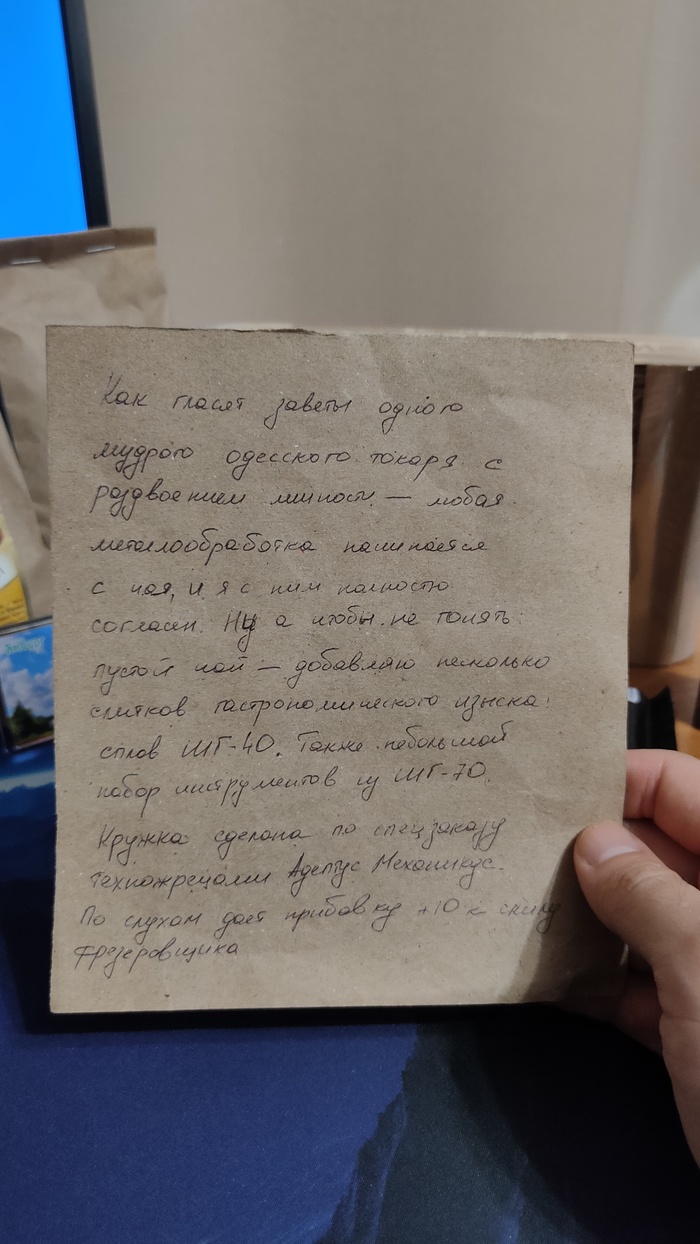 Как гласят заветы одного
мудрого одесского токаря с
раздвоением личности — любая
металлообработка начинается
с чая, и я с ним полностью
согласен. Ну а чтобы не гонять
пустой чай — добавляю несколько
слитков гастрономического изыска:
сплав ШГ-40. Также небольшой
набор инструментов из ШГ-70.
Кружка сделана по спецзаказу
техножрецами Адептус Механикус.
По слухам дает прибавку +10 к скилу
фрезеровщика